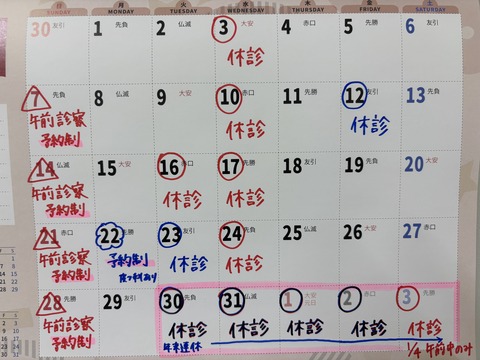 日 月 火 水 木 金 土
SUNDAY MONDAY TUESDAY WEDNESDAY THURSDAY FRIDAY SATURDAY
30 友引 1 先負 2 仏滅 3 大安 4 赤口 5 先勝 6 友引
休診
7 先負 8 仏滅 9 大安 10 赤口 11 先勝 12 友引 13 先負
午前診察 休診 休診
予約制
14 仏滅 15 大安 16 赤口 17 先勝 18 友引 19 先負 20 大安
午前診察 休診 休診
予約制
21 赤口 22 先勝 23 友引 24 先負 25 仏滅 26 大安 27 赤口
午前診察 予約制 休診 休診
予約制
28 先勝 29 友引 30 先負 31 仏滅 1 大安 2 赤口 3 先勝
元日
午前診察 休診 休診 休診 休診 休診
予約制 年末連休 1/4 午前中のみ